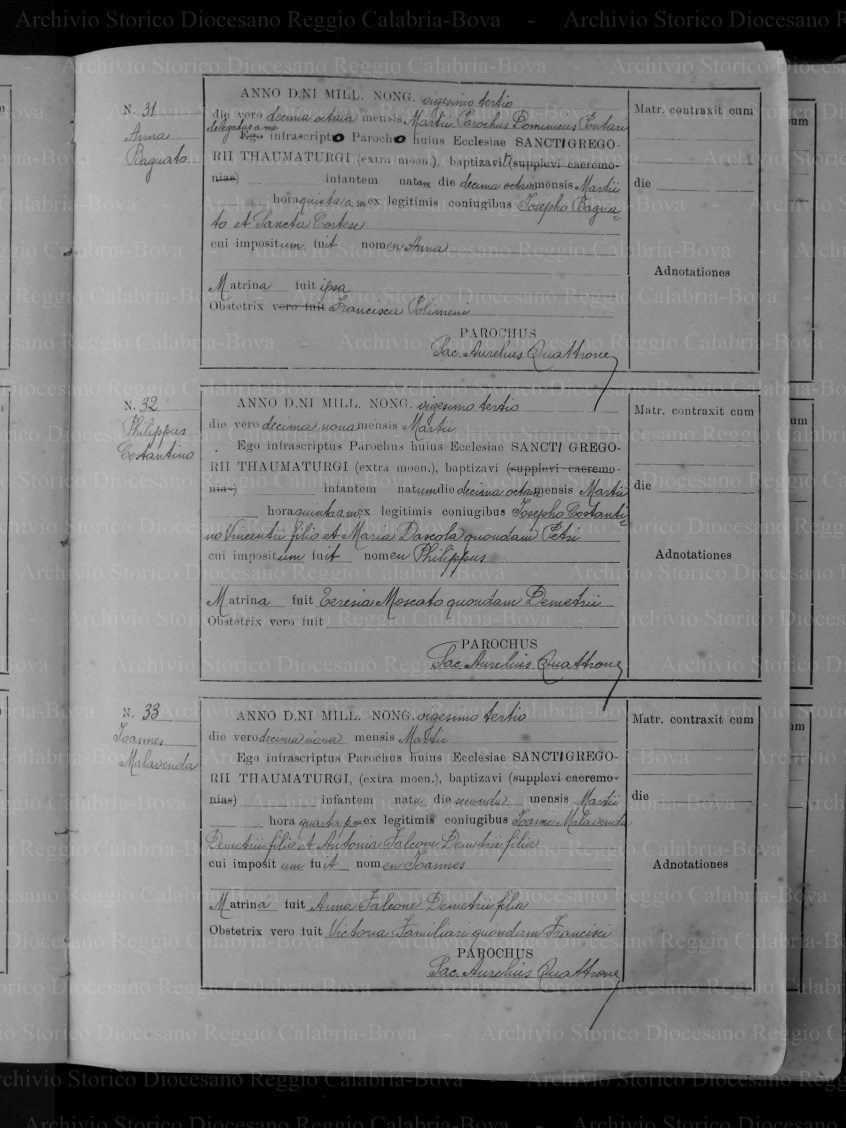 N. 31
Anna
Bagnato
ANNO D.NI MILL. NONG. vigesimo tertio
die vero decima octava mensis Martii Parochus Dominicus Fontari
delegatus a me
Ego infrascripto Parocho huius Ecclesiae SANCTI GREGO-
RII THAUMATURGI (extra moen.), baptizavit (supplevi caeremo-
nias) infantem natam die decima octava mensis Martii
hora quinta a.m ex legitimis coniugibus Iosepho Bagna-
to et Sancta Cortese
cui impositum fuit nomen Anna
Matrina fuit ipsa
Obstetrix vero fuit Francisca Polimeni
PAROCHUS
Sac. Aurelius Quattrone
Matr. contraxit cum
die
Adnotationes
N. 32
Philippus
Costantino
ANNO D.NI MILL. NONG. vigesimo tertio
die vero decima nona mensis Martii
Ego infrascriptus Parochus huius Ecclesiae SANCTI GREGO-
RII THAUMATURGI (extra moen.), baptizavi (supplevi caeremo-
nias) infantem natum die decima octava mensis Martii
hora quinta a.m ex legitimis coniugibus Iosepho Costanti-
no Vincentii filio et Maria Dascola quondam Petri
cui impositum fuit nomen Philippus
Matrina fuit Teresia Moscato quondam Demetrii
Obstetrix vero fuit
PAROCHUS
Sac. Aurelius Quattrone
Matr. contraxit cum
die
Adnotationes
N. 33
Ioannes
Malavenda
ANNO D.NI MILL. NONG. vigesimo tertio
die vero decima nona mensis Martii
Ego infrascriptus Parochus huius Ecclesiae SANCTI GREGO-
RII THAUMATURGI, (extra moen.), baptizavi (supplevi caeremo-
nias) infantem natu die secunda mensis Martii
hora quarta p.m ex legitimis coniugibus Ioanne Malavenda
Demetrii filio et Antonia Falcone Demetrii filia
cui impositum fuit nomen Ioannes
Matrina fuit Anna Falcone Demetrii filia
Obstetrix vero fuit Victoria Familiari quondam Francisci
PAROCHUS
Sac. Aurelius Quattrone
Matr. contraxit cum
die
Adnotationes
Archivio Storico Diocesano Reggio Calabria-Bova